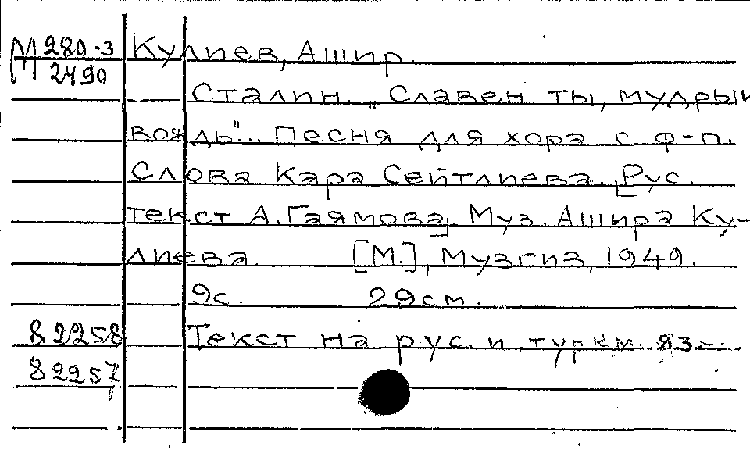 М 280-3
2490
Кулиев, Ашир.
Сталин. „Славен ты, мудрый
вождь"... Песня для хора с ф-п.
Слова Кара Сейтлиева. [Рус.
текст А. Гаямова]. Муз. Ашира Ку-
лиева. [М.], Музгиз, 1949.
9с. 29см.
82258 Текст на рус. и туркм. яз.
82257